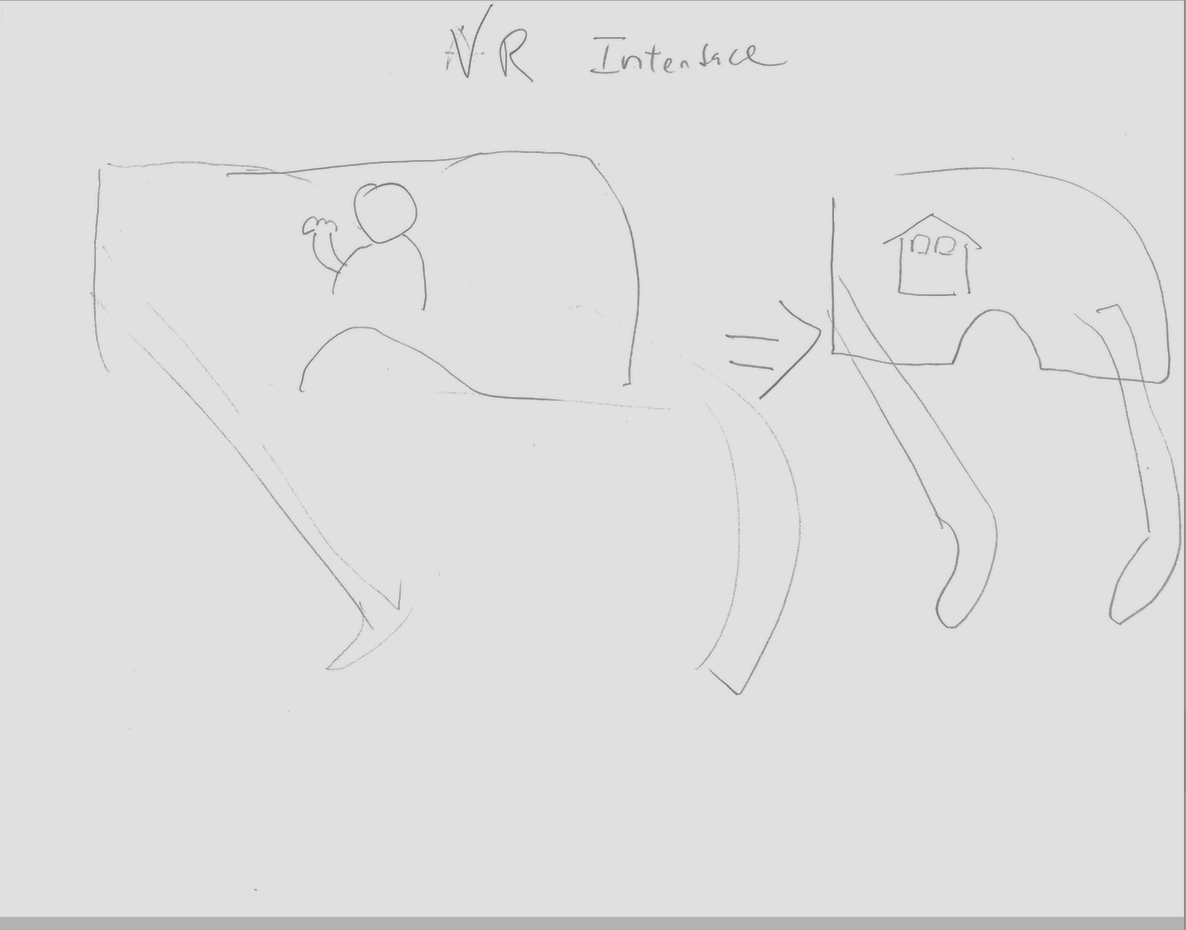 VR Interface